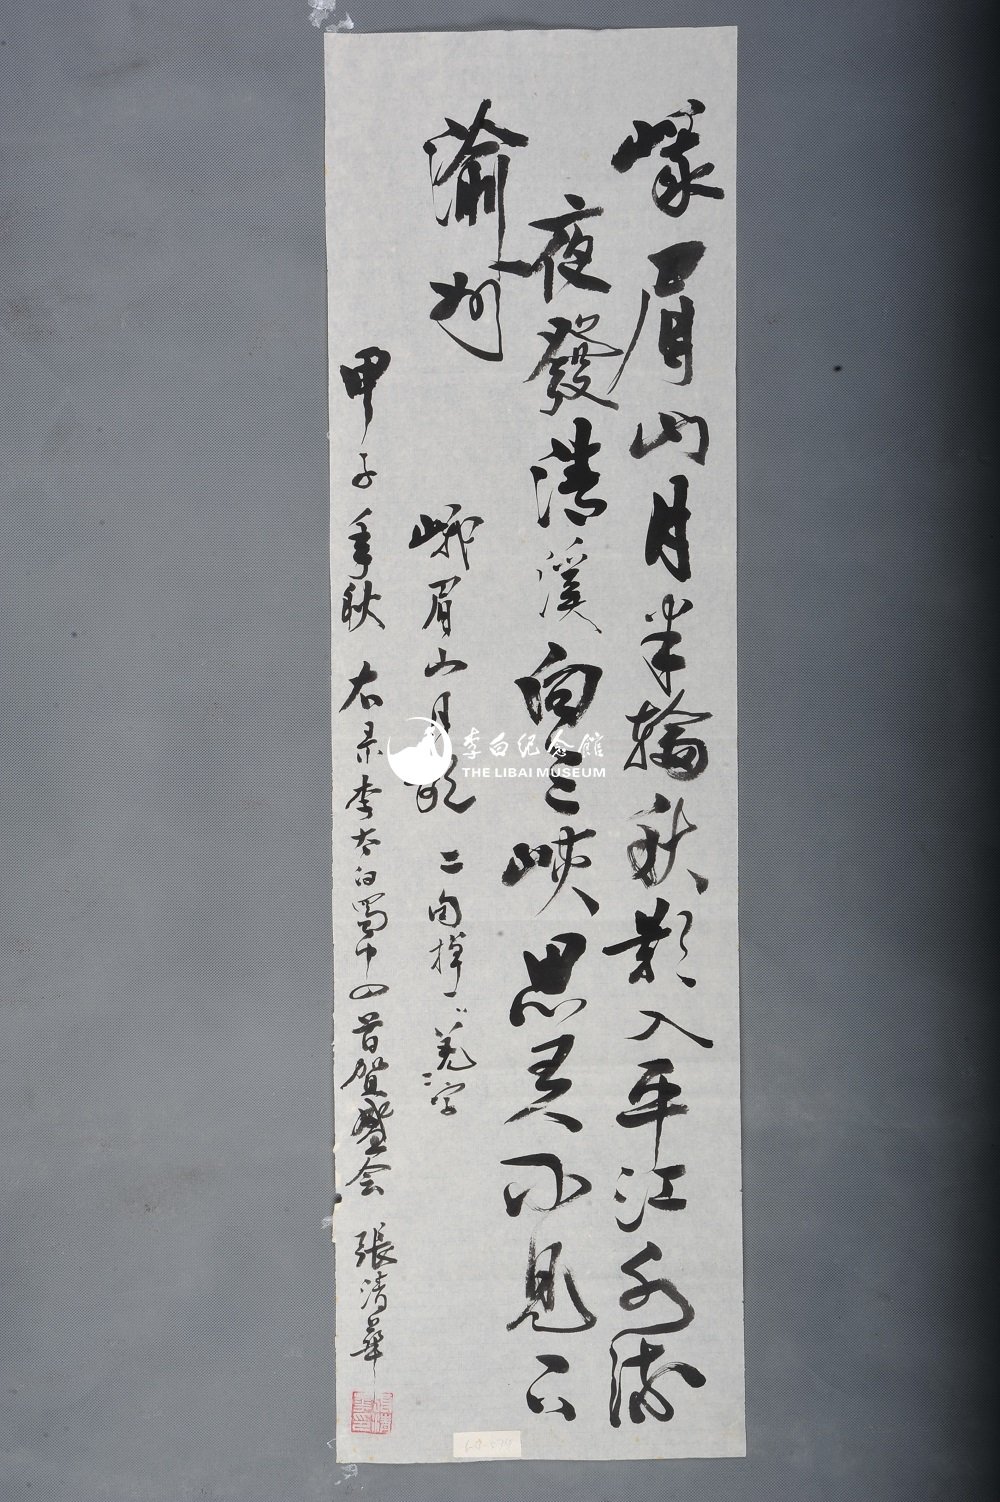 峨眉山月半輪秋影入平江水流
夜發清溪向三峽思君不見下
渝州
峨眉山月歌 二句掉一羌字
甲子年秋 右录李太白蜀中四首賀盛会 張清華
李白纪念馆
THE LIBAI MUSEUM